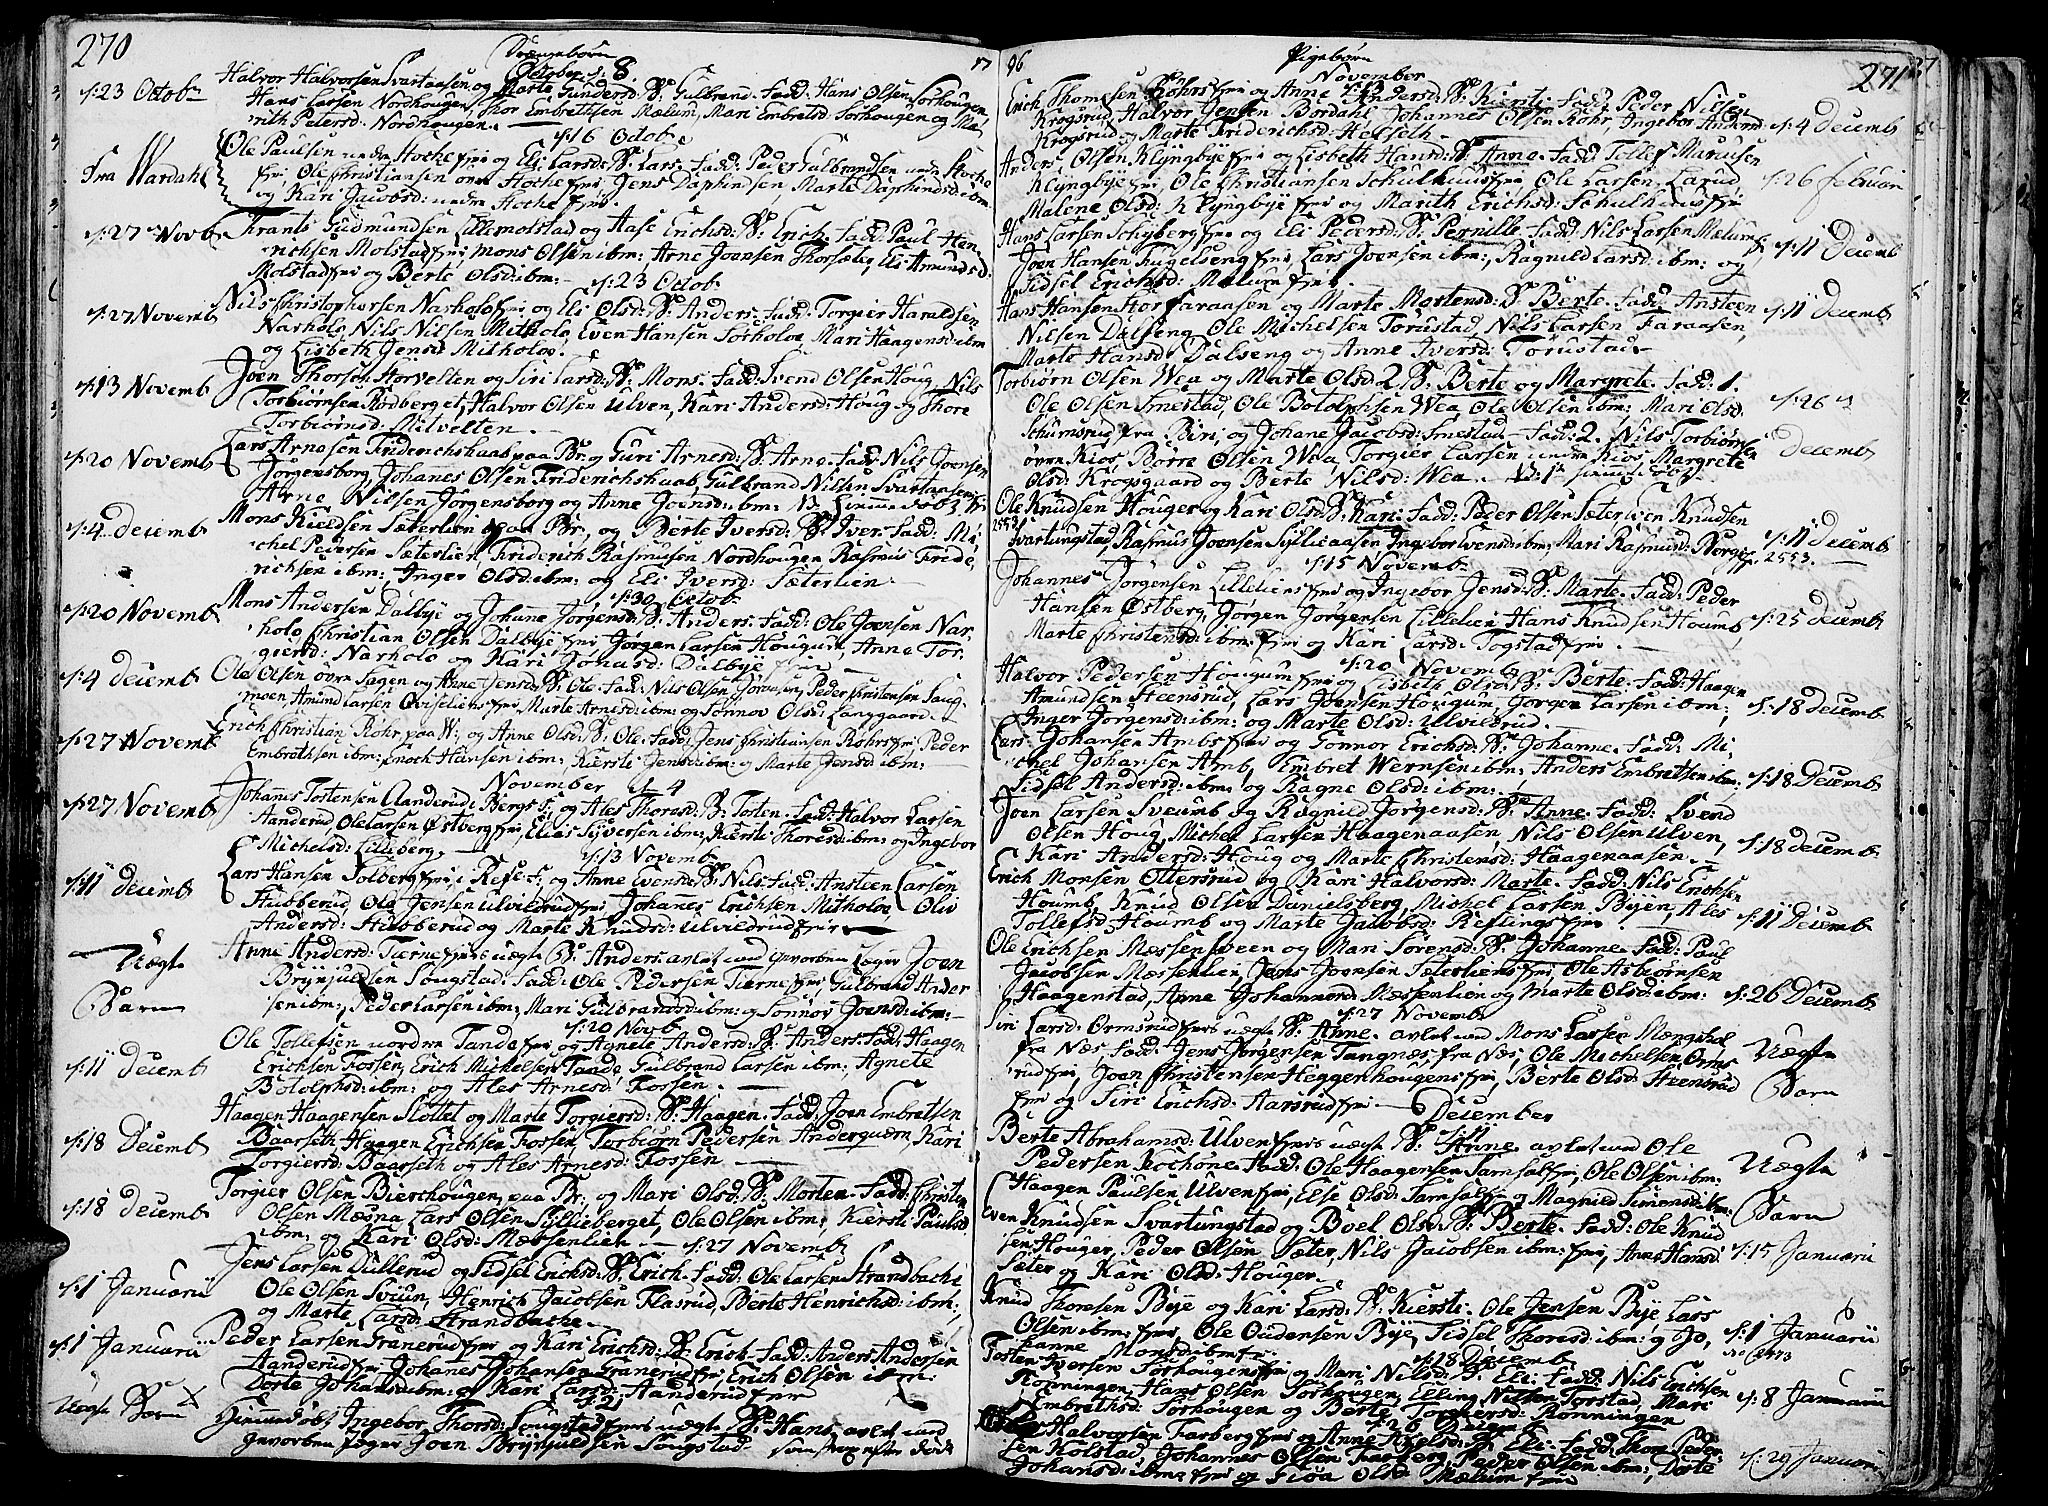 270
Drengebørn
October d: 8.
17
d:23 Octobr
Halvor Halvorsen Svartaasen og Marte Gundersd: B: Gulbrand. Fadd: Hans Olsen Sørhougen,
Hans Larsen Nordhougen, Thor Embrethsen Mælum, Mari Embretsd Sørhougen og Ma
rith Petersd. Nordhougen.
d:16 Octob.
Fra Wardahl
Ole Paulsen nedre Hocke fmi og Eli Larsd: B: Lars. Fadd: Peder Gulbrandsen nedre Hocke
fmi, Ole Christiansen øvre Hocke fmi, Jens Daphindsen, Marte Daphindsd: ibm:
og Kari Jacobsd: nedre Hocke fmi.
d:27 Novb.
Frants Gudmundsen Lillemolstad og Aase Erichsd: B: Erich. Fadd: Paul Hen
richsen Molstad fmi Mons Olsen ibm: Arne Joensen Thorsælie, Eli Amundsd:
Molstad fmi og Berte Olsd: ibm:
d:23 Octob.
d:27 Novemb
Nils Christophersen Narholo fmi og Eli Olsd: B: Anders. Fadd: Torgier Haraldsen
Narholo, Nils Nilsen Mitholo, Even Hansen Sørholoe, Mari Haagensd: ibm
og Lisbeth Jensd: Mitholoe.
d:13 Novemb
Joen Thorsen Horvelten og Siri Larsd: B: Mons. Fadd: Svend Olsen Houg, Nils
Torbiørnsen Rødberget, Halvor Olsen Ulven, Kari Andersd: Houg og Thore
Torbiørnsd: Mitvelten.
d:20 Novemb
Lars Arnesen Friderichshaab paa Br. og Guri Arnesd: B: Arne. Fadd: Nils Joensen
Jørgensborg, Johannes Olsen Friderichshaab, Gulbrand Nilsen Svartaasen
Arne Nielsen Jørgensborg og Anne Joensd: ibm:
d:4 Decemb
Mons Kieldsen Sæterlien paa Br., og Berte Iversd: B: Iver. Fadd: Mi
chel Pedersen Sæterlien, Friderich Rasmusen Nordhougen Rasmus Fride,
richsen ibm: Inger Olsd: ibm: og Eli Iversd: Sæterlien.
d:30 Octob.
d:20 Novemb
Mons Andersen Dalbye og Johanne Jørgensd: B: Anders. Fadd: Ole Joensen Nar
holo, Christian Olsen Dalbye fmi, Jørgen Larsen Hougum, Anne Tor,
giersd: Narholo og Kari Jonasd: Dalbye fmi
d:4 Decemb
Ole Olsen øvre Sagen og Anne Jensd: B: Ole. Fadd: Nils Olsen Jørausen, Peder Christensen Saug
moen, Amund Larsen Qviseliens fmi, Marte Arnesd: ibm: og Sønnov Olsd: Langgaard.
d:27 Novemb
Erich Christian Røhr paa W:, og Anne Olsd: B: Ole. Fadd: Jens Christiansen Røhrs fmi Peder
Embrethsen ibm: Enoch Hansen ibm:, Kiersti Jensd: ibm: og Marte Jensd: ibm:
November d. 4
d:27 Novemb
Johannes Tostensen Aanderud i Bergs f: og Ales Thorsd: B: Tosten. Fadd: Halvor Larsen
Aanderud, Ole Larsen Østberg fmi, Elias Syversen ibm:, Kierste Thoresd: ibm: og Ingebor
Michelsd: Lilleberg.
d:13 Novemb
d:11 Decemb
Lars Hansen Solberg fmi i Refs f: og Anne Evensd: B: Nils. Fadd: Ansteen Larsen
Hubberud, Ole Jensen Ulvildrud fmi Johanes Erichsen Mitholoe, Oliv
Andersd: Hubberud og Marte Knudsd: Ulvildrud fmi
Uægte
Barn
Anne Andersd: Tierne fmis uægte B: Anders avlet med gevorben Jæger Joen
Brynjulsen Songstad. Fadd: Ole Pedersen Tierne fmi Gulbrand Ander
sen ibm:, Peder Larsen ibm:, Mari Gulbrandsd: ibm: og Sønnov Joensd: ibm:
d:20 Novb
d:11 Decemb
Ole Tollefsen nordre Tande fmi og Agnete Andersd: B: Anders. Fadd: Haagen
Erichsen Fossen, Erich Mickelsen Tande, Gulbrand Larsen ibm:, Agnete
Botolphsd: ibm: og Ales Arnesd: Fossen.
d:18 Decemb
Haagen Haagensen Slottet og Marte Torgiersd: B: Haagen. Fadd: Joen Embretsen
Baarseth Haagen Erichsen Fossen Torbiørn Pedersen Anderquærn, Kari
Torgiersd: Baarseth og Ales Arnesd: Fossen
d:18 Decemb
Torgier Olsen Bierchougen paa Br: og Mari Olsd: B: Morten. Fadd: Christen
Olsen Mæsna, Lars Olsen Syllieberget, Ole Olsen ibm:, Kiersti Paulsd
ibm: og Kari Olsd: Mæssenlien.
d:27 Novemb
d:1 Januarii
Jens Larsen Dullerud og Sidsel Erichsd: B: Erich. Fadd: Ole Larsen Strandbache
Ole Olsen Sveun, Henrich Jacobsen Flasrud, Berte Henrichsd: ibm:,
og Marte Larsd: Strandbache.
d:1 Januarii
Peder Larsen Granerud fmi og Kari Erichsd: B: Erich. Fadd: Anders Andersen
Aanderud fmi Johanes Johansen Granerud fmi Erich Olsen ibm:
Dorte Johansd: ibm: og Kari Larsd: Aanderud fmi
d:21
Uægte Barn
Ingebor Thorsd: Songstad fmis uægte B: Hans avlet med
gevorben Jæger Joen Brynjulsen Songstad.
96
Pigebørn
November
d:13
271
Erich Thomesen Røhrs fmi og Anne Andersd: B: Kierste. Fadd: Peder Nilsen
Krogsrud, Halvor Jensen Bordahl, Johannes Olsen Røhr, Ingebor Andersd
Krogsrud og Marte Friderichsd: Helseth.
d:4 Decemb
Anders Olsen Klyngbye fmi og Lisbeth Hansd: B: Anne. Fadd: Tollef Mariusen
Klyngbye fmi, Ole Christiansen Schulhuus fmi, Ole Larsen Larud
Malene Olsd: Klyngbye fmi og Marith Erichsd: Schulhuus fmi
d:26 Februari
Hans Larsen Schyberg fmi og Eli Pedersd: B: Pernille. Fadd: Nils Larsen Mælum
Joen Hansen Fugelseng fmi, Lars Joensen ibm:, Ragnild Larsd: ibm: og
Sidsel Erichsd: Mælum fmi.
d:11 Decemb
Hans Hansen Stor Faraasen og Marte Mortensd: B: Berte. Fadd: Ansteen
Nilsen Dalseng, Ole Michelsen Torustad, Nils Larsen Faraasen,
Marte Hansd: Dalseng og Anne Iversd: Torustad.
d:11 Decemb
Torbiørn Olsen Wea og Marte Olsd: 2 B: Berte og Margrete. Fadd: 1.
Ole Olsen Smestad, Ole Botolphsen Wea Ole Olsen ibm: Mari Olsd.
Schumsrud fra Biri, og Johane Jacobsd: Smestad. Fadd: 2. Nils Torbiørnsen
øvre Kios, Børre Olsen Wea, Torgier Larsen nedre Kios Margrete
Olsd: Krogsgaard og Berte Nilsd: Wea.
d:26
Decemb
Ole Knudsen Houger og Kari Olsd: B: Kari. Fadd: Peder Olsen Sæter, Even Knudsen
2553
Svartungstad, Rasmus Joensen Syllieaasen Ingebor Evensd: ibm: Mari Rasmusd: Berge
2553.
d:11 Decemb
d:15 Novemb.
Johannes Jørgensen Lilleliens fmi og Ingebor Jensd: B: Marte. Fadd: Peder
Hansen Østberg, Jørgen Jørgensen Lillelien Hans Knudsen Houmb
Marte Christensd: ibm: fmi og Kari Larsd: Togstad fmi.
d:25 Decemb
d:20 Novemb
Halvor Pedersen Hougum fmi og Lisbeth Olsd: B: Berte. Fadd: Haagen
Amundsen Steensrud, Lars Joensen Hougum, Jørgen Larsen ibm:,
Inger Jørgensd: ibm: og Marte Olsd: Ulvildrud.
d:18 Decemb
Lars Johansen Ambs fmi og Sønnov Erichsd: B: Johanne. Fadd: Mi
chel Johansen Amb, Embret Wernsen ibm: Anders Embretsen ibm:
Sidsel Andersd: ibm: og Ragne Olsd: ibm:
d:18 Decemb
Joen Larsen Sveumb og Ragnild Jørgensd: B: Anne. Fadd: Svend
Olsen Houg, Michel Larsen Haagenaasen, Nils Olsen Ulven,
Kari Andersd: Houg og Marte Christensd: Haagenaasen.
d:18 Decemb
Erich Monsen Ottersrud og Kari Halvorsd: Marte. Fadd: Nils Erichsen
Houmb, Knud Olsen Danielsberg, Michel Larsen Byen, Ales
Tollefsd: Houmb og Marte Jacobsd: Kieflings fmi.
d:11 Decemb
Ole Erichsen Mæssensveen og Mari Sørensd: B: Johanne. Fadd: Paul
Jacobsen Mæssenlien, Jens Joensen Sæterliens fmi, Ole Asbiørnsen
Haagenstad, Anne Johannesd: Mæssenlien og Marte Olsd: ibm:
d:26 Decemb
d:27 Novemb
Siri Larsd: Ormsrud fmis uægte B: Anne. avlet med Mons Larsen Mængshol
fra Næs, Fadd: Jens Jørgensen Tangnæs, fra Næs, Ole Michelsen Orms
rud fmi, Joen Christensen Heggenhougens fmi, Berte Olsd: Steensrud
fmi og Siri Erichsd: Aarsrud fmi
Uægte
Barn
December
d:11
Berte Abrahamsd: Ulven fmis uægte B: Anne avlet med Ole
Pedersen Kochøne. Fadd: Ole Haagensen Jarnsal fmi, Ole Olsen ibm:
Haagen Paulsen Ulven fmi, Else Olsd: Jarnsal fmi og Magnild Simensd: ibm:
Uægte
Barn
Even Knudsen Svartungstad og Boel Olsd: B: Berte. Fadd: Ole Knud
sen Houger, Peder Olsen Sæter, Nils Jacobsen ibm: fmi, Anne Hansd
Sæter og Kari Olsd: Houger.
d:15 Januarii
Knud Thoresen Bye og Kari Larsd: B: Kierste. Ole Jensen Bye Lars
Olsen ibm: fmi, Ole Oudensen Bye, Sidsel Thoresd: ibm: og Jo,
hanne Monsd: ibm: fmi.
d:1 Januarii
d:18 Decemb
Tosten Iversen Sørhougens fmi og Mari Nilsd: B: Eli. Fadd: Nils Erichsen
Rønningen, Hans Olsen Sørhougen, Elling Nilsen Torstad, Mari
Embrethsd: Sørhougen og Berte Torgiersd: Rønningen
d:8 Januarii
d:26 Decem
Halvorsen Farberg fmi og Anne Axelsd: B: Eli. Fadd: Thom Peder
sen Kolstad, Johannes Olsen Farberg, Peder Olsen ibm:, Dorte
Johansd: ibm: fmi og Fiøa Olsd: Mælum fmi
d:29 Januarii